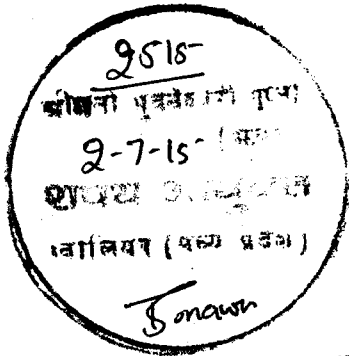 2515
श्रीमती भुवनेश्वरी गुप्ता
2-7-15
शपथ आयुक्त
ग्वालियर (मध्य प्रदेश)